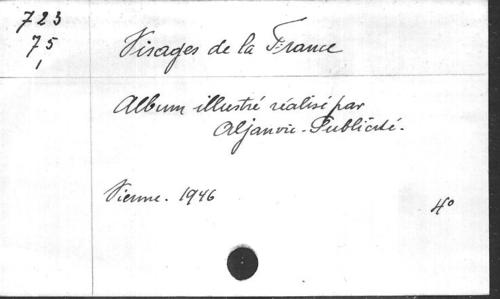 723
75
1
Visages de la France
Album illustré réalisé par
Aljanvic-Publicité.
Vienne. 1946
4°